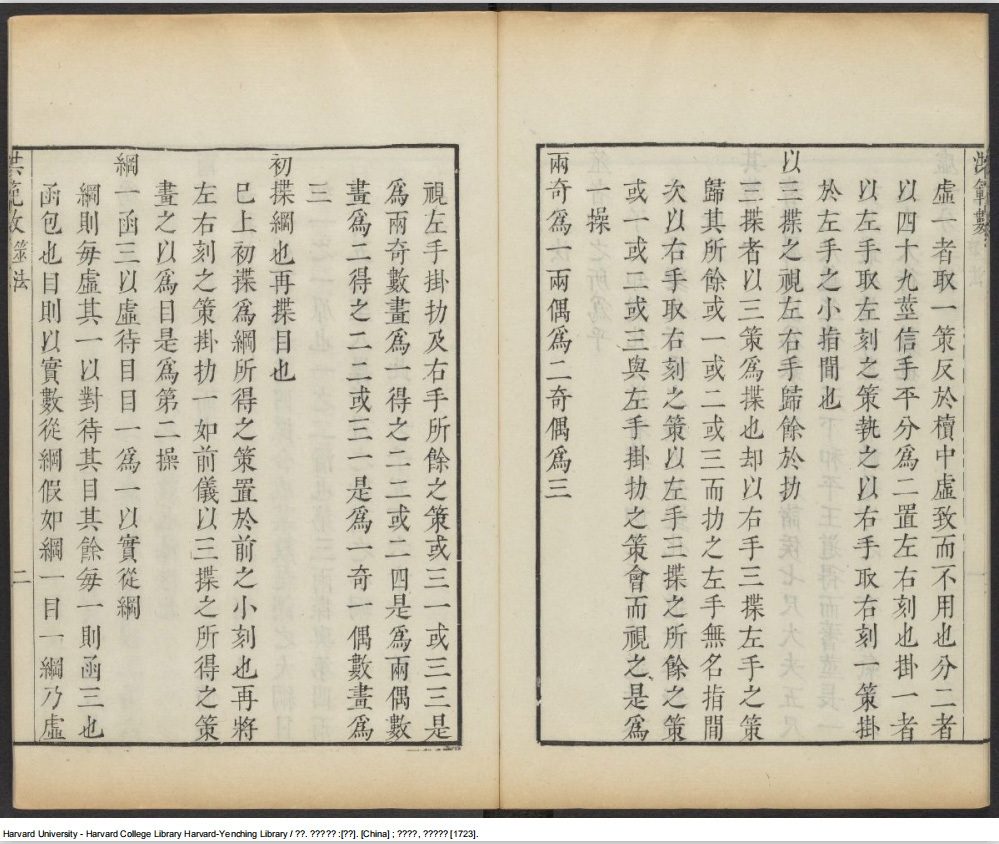 洪範數
虛一者取一策反於櫝中虛致而不用也分二者
以四十九莖信手平分爲二置左右刻也掛一者
以左手取左刻之策執之以右手取右刻一策掛
於左手之小指間也
以三揲之視左右手歸餘於扐
三揲者以三策爲揲也却以右手三揲左手之策
歸其所餘或一或二或三而扐之左手無名指間
次以右手取右刻之策以左手三揲之所餘之策
或一或二或三與左手掛扐之策會而視之是爲
一操
兩奇爲一兩偶爲二奇偶爲三
視左手掛扐及右手所餘之策或三一或三三是
爲兩奇數畫爲一得之二二或二四是爲兩偶數
畫爲二得之二三或三一是爲一奇一偶數畫爲
三
初揲綱也再揲目也
已上初揲爲綱所得之策置於前之小刻也再將
左右刻之策掛扐一如前儀以三揲之所得之策
畫之以爲目是爲第二操
綱一函三以虛待目目一爲一以實從綱
綱則每虛其一以對待其目其餘每一則函三也
函包也目則以實數從綱假如綱一目一綱乃虛
洪範數 筮法 二
Harvard University - Harvard College Library Harvard-Yenching Library / ??. ????? :[??]. [China] ; ????, ????? [1723].